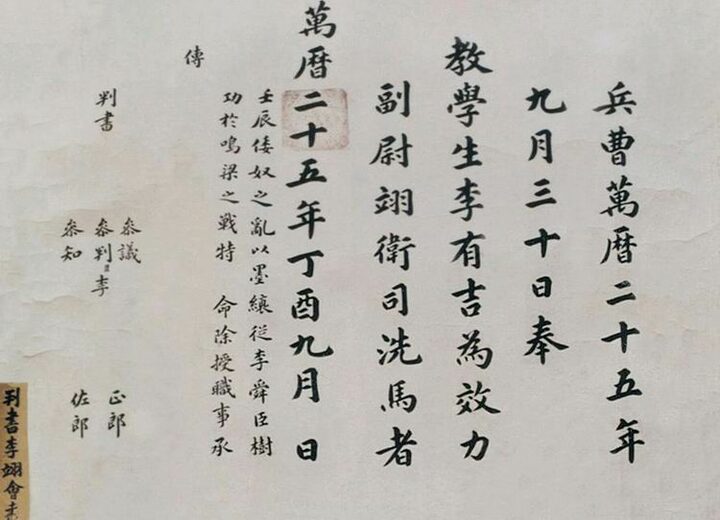 兵曹萬曆二十五年
九月三十日奉
教學生李有吉為效力
副尉翊衛司洗馬者
萬曆二十五年丁酉九月 日
壬辰倭奴之亂以墨縗從李舜臣樹
功於鳴梁之戰特 命除授職事承
傳
判書
參議
參判 李
參知
正郎
佐郎
判書李翊會書